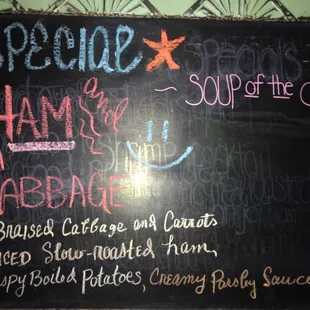 SPECIAL
SOUP of the
HAM and
CABBAGE
Braised Cabbage and Carrots
Slow-roasted ham,
Boiled Potatoes, Creamy Parsley Sauce